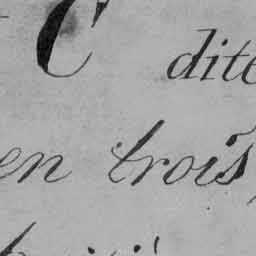 C dite
en trois,